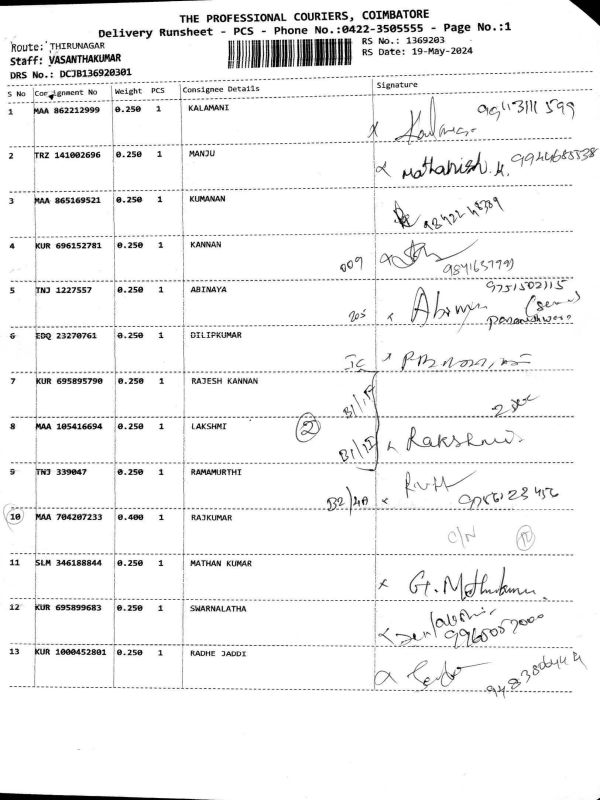 THE PROFESSIONAL COURIERS, COIMBATORE
Delivery Runsheet - PCS - Phone No.:0422-3505555 - Page No.:1
Route: THIRUNAGAR
RS No.: 1369203
Staff: VASANTHAKUMAR
RS Date: 19-May-2024
DRS No.: DCJB136920301
S No Consignment No Weight PCS Consignee Details Signature
1 MAA 862212999 0.250 1 KALAMANI
2 TRZ 141002696 0.250 1 MANJU Mathanish. K. 9944685538
3 MAA 865169521 0.250 1 KUMANAN
4 KUR 696152781 0.250 1 KANNAN 009
5 TNJ 1227557 0.250 1 ABINAYA 205 9751502115
6 EDQ 23270761 0.250 1 DILIPKUMAR
7 KUR 695895790 0.250 1 RAJESH KANNAN
8 MAA 105416694 0.250 1 LAKSHMI 2
9 TNJ 339047 0.250 1 RAMAMURTHI B2/4A
10 MAA 704207233 0.400 1 RAJKUMAR C/N
11 SLM 346188844 0.250 1 MATHAN KUMAR
12 KUR 695899683 0.250 1 SWARNALATHA
13 KUR 1000452801 0.250 1 RADHE JADDI